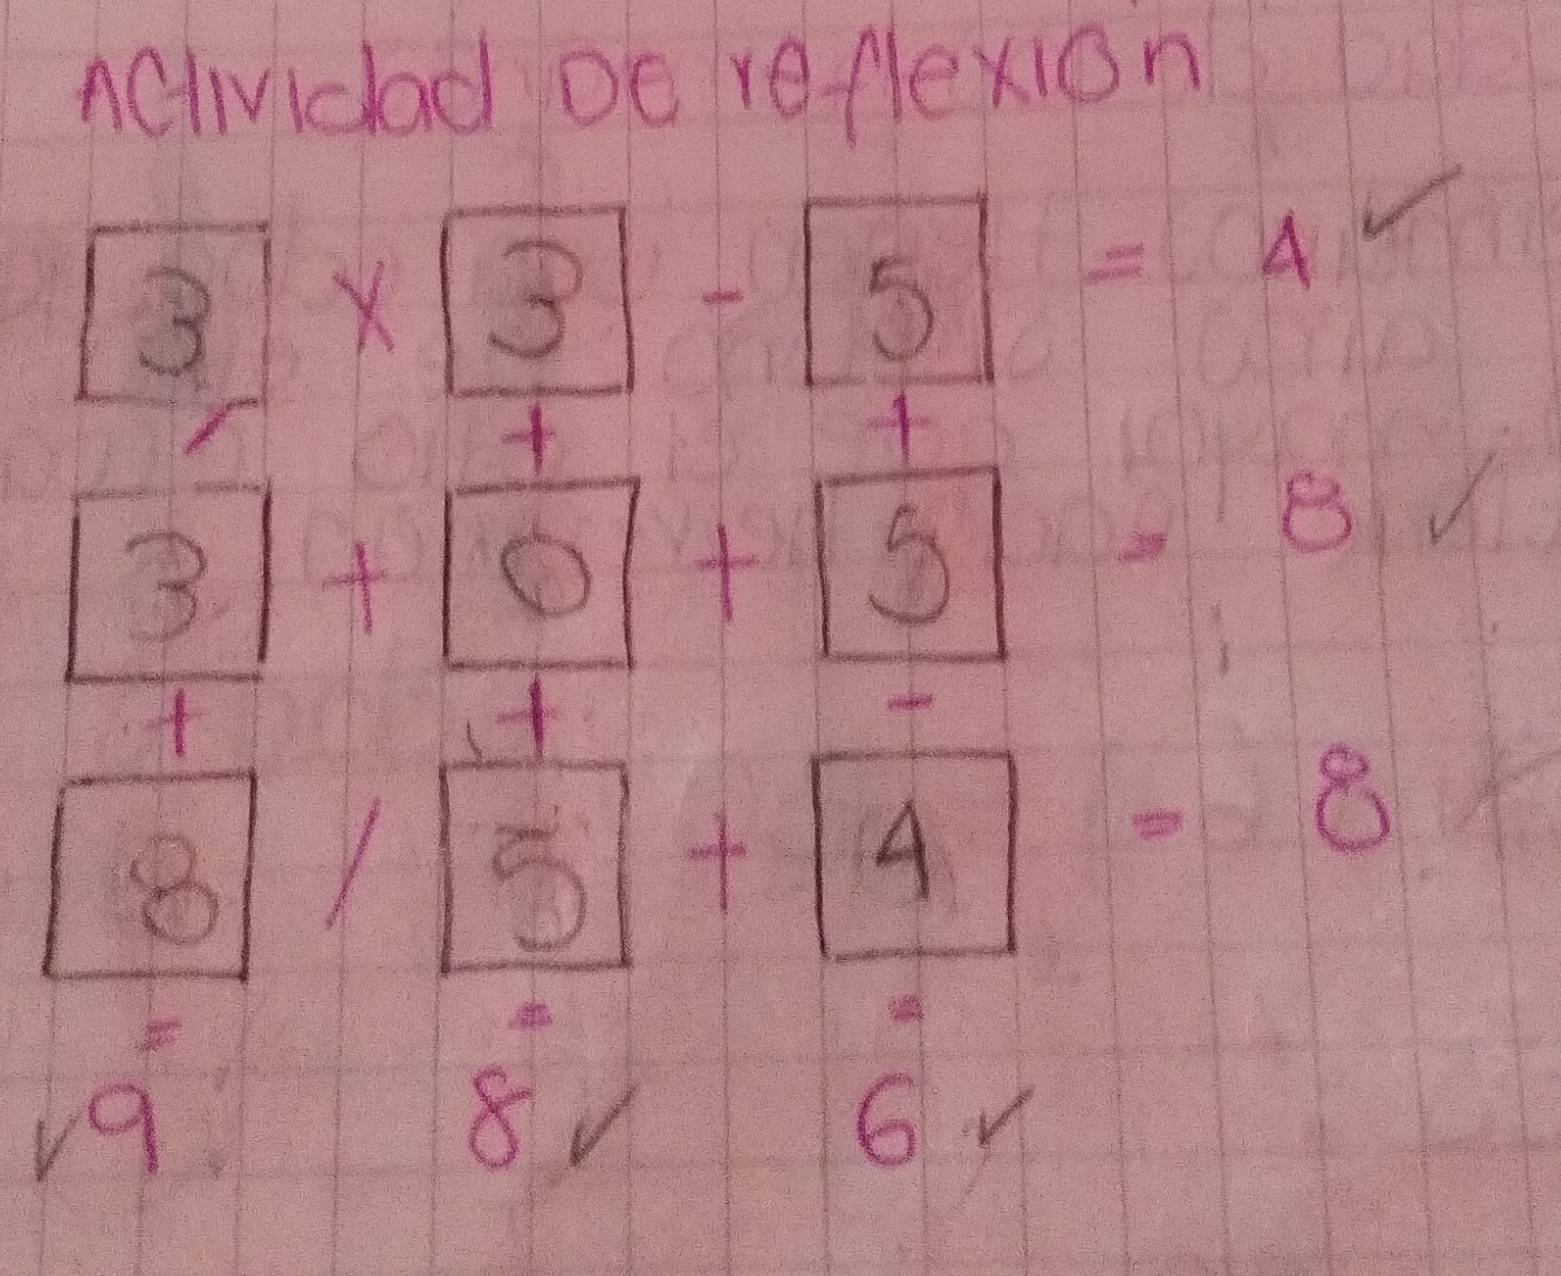 Actividad De reflexión
3 x 3 - 5 = 4 ✓
/ + +
3 + 0 + 5 = 8 ✓
+ + -
8 / 5 + 4 = 8
= = =
✓ 9 8 ✓ 6 ✓